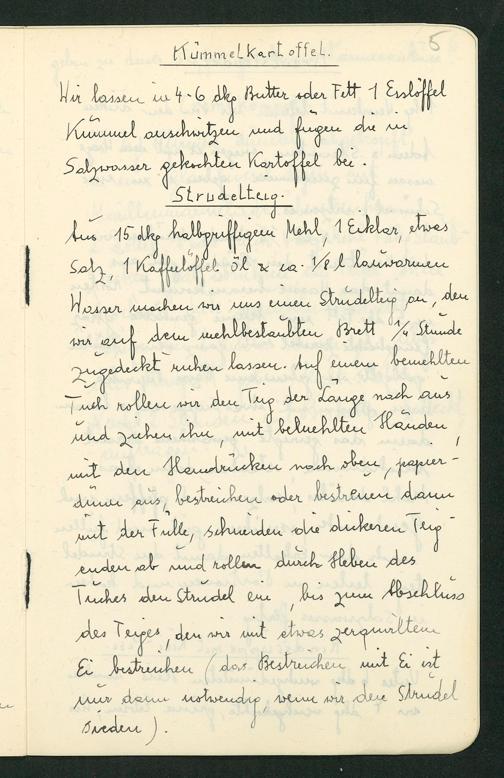 5
Kümmelkartoffel.
Wir lassen in 4-6 dkg Butter oder Fett 1 Esslöffel
Kümmel anschwitzen und fügen die in
Salzwasser gekochten Kartoffel bei
Strudelteig.
Aus 15 dkg halbgriffigem Mehl, 1 Eiklar, etwas
Salz, 1 Kaffeelöffel Öl & ca. 1/8 l lauwarmen
Wasser machen wir uns einen Strudelteig an, den
wir auf dem mehlbestaubten Brett 1/4 Stunde
zugedeckt ruhen lassen. Auf einem bemehlten
Tuch rollen wir den Teig der Länge nach aus
und ziehen ihn, mit bemehlten Händen,
mit den Handrücken nach oben, papier-
dünn aus, bestreichen oder bestreuen dann
mit der Fülle, schneiden die dickeren Teig-
enden ab und rollen durch Heben des
Tuches den Strudel ein, bis zum Abschluss
des Teiges, den wir mit etwas zerquirltem
Ei bestreichen (das Bestreichen mit Ei ist
nur dann notwendig, wenn wir den Strudel
sieden).